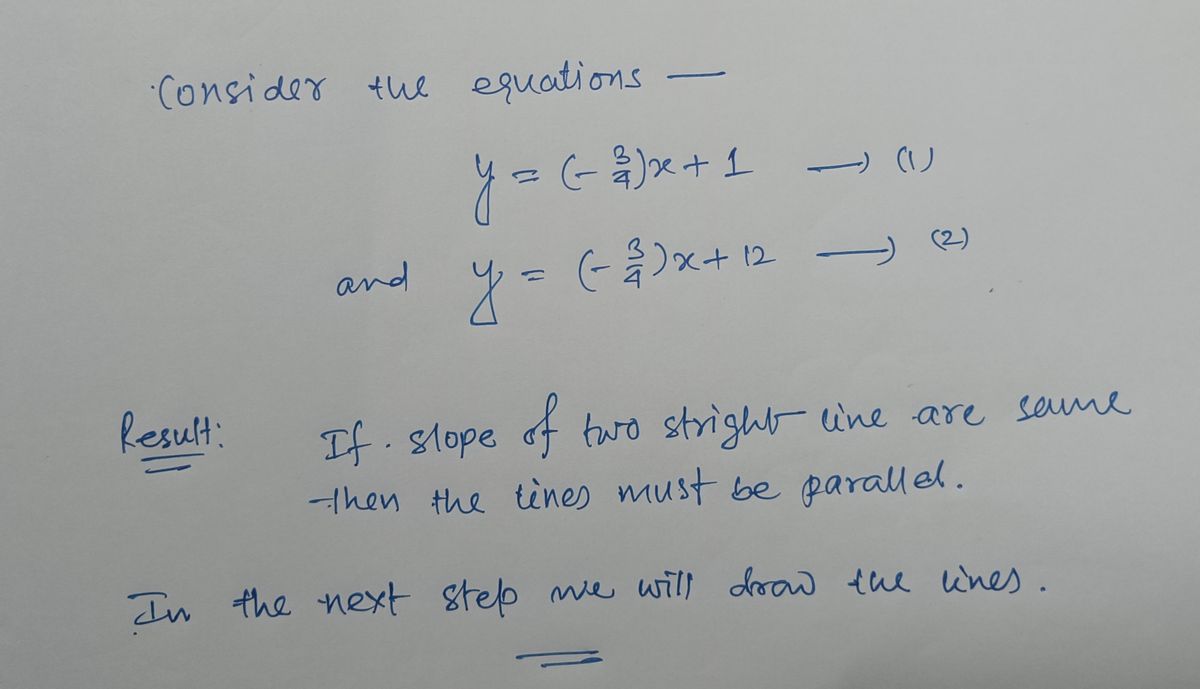 Consider the equations —
y = (-3/4)x + 1 → (1)
and y = (-3/4)x + 12 → (2)
Result: If slope of two stright line are same
then the lines must be parallel.
In the next step we will draw the lines.